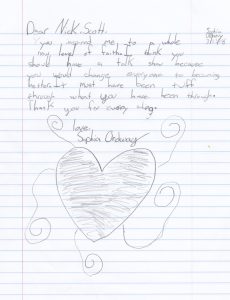 Dear Nick Scott,
You inspired me to a whole
new level of faith. I think you
should have a talk show because
you would change everyone to becoming
better. It must have been tuff
through what you have been through.
Thank you for every thing.
love,
Sophia Ordway